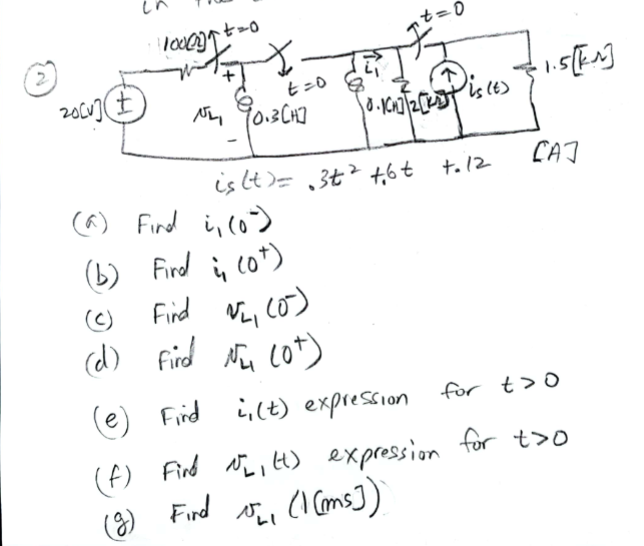 in the
②
100[Ω] t=0
t=0
t=0
+
20[V]
±
vL1
-
0.3[H]
i1
0.1[H]
2[kΩ]
is(t)
1.5[kΩ]
is(t)= .3t² +.6t +.12 [A]
(a) Find i1(0⁻)
(b) Find i1(0⁺)
(c) Find vL1(0⁻)
(d) Find vL1(0⁺)
(e) Find i1(t) expression for t>0
(f) Find vL1(t) expression for t>0
(g) Find vL1(1[ms])